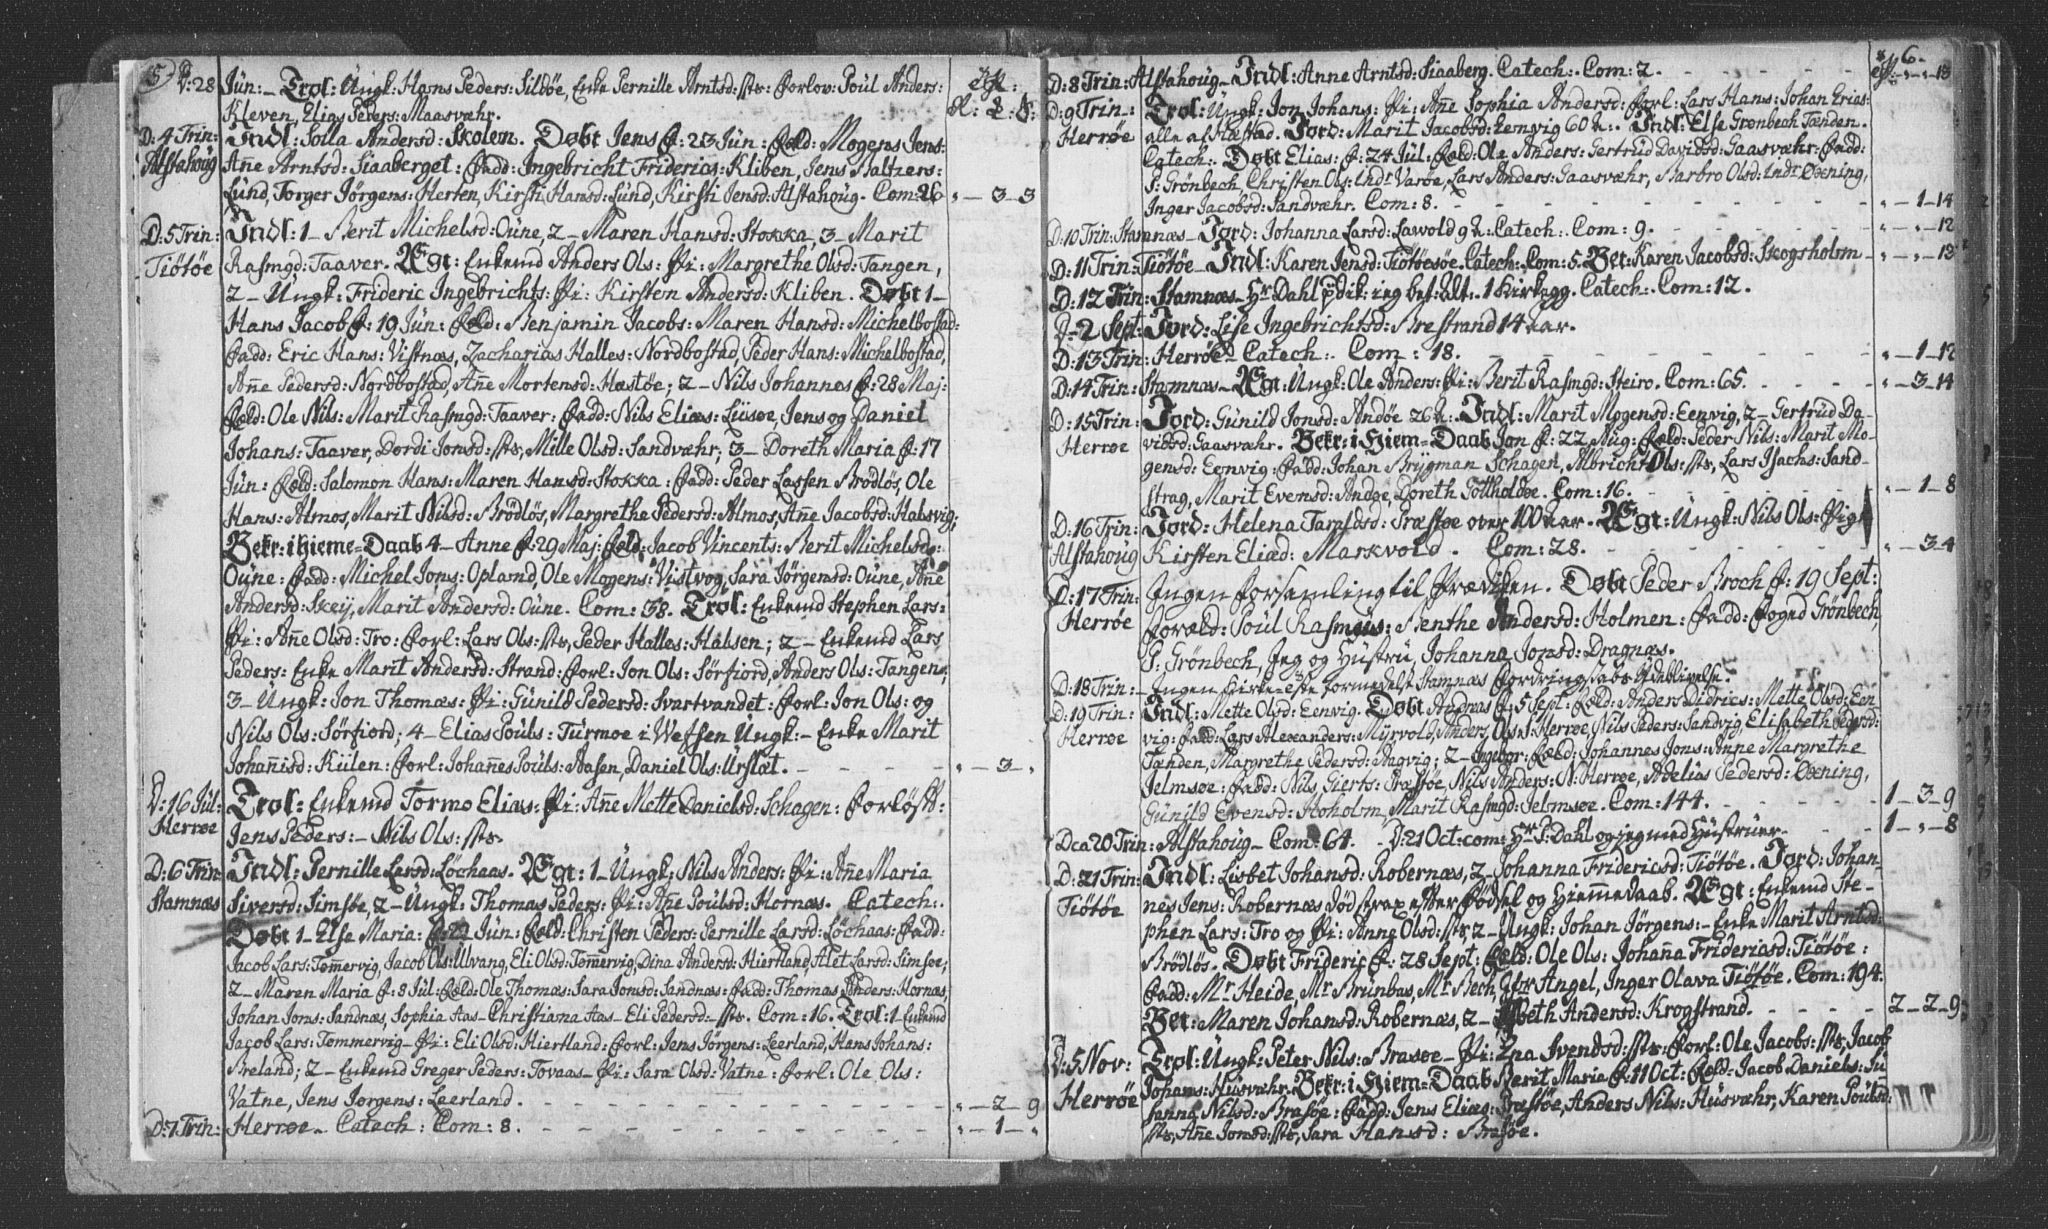 5) D: 28 Jun: _ Trol: Ungk: Hans Peders: Silbøe, Enke Pernille Arntsd: sts: Forlov: Poul Anders:
Kleven, Elias Peders: Maasvæhr.
D: 4 Trin: Indl: Solla Andersd: Skolem. Døbt Jens f: 23 Jun: Fæld: Mogens Jens:
Alstahoug Añe Arntsd: Siaaberget: Fadd: Ingebricht Friderics: Kliben, Jens Baltzers:
Lund, Torger Jørgens: Herten, Kirsti Hansd: Lund, Kirsti Jensd: Alstahoug. Com: 26 „ _ 3 _ 3
D: 5 Trin: Indl: 1 _ Berit Michelsd: Oune, 2 _ Maren Hansd: Stokka, 3 _ Marit
Tiøtøe Rasmgd: Taaver. Ægt: Enkemd Anders Ols: Pi: Margrethe Olsd: Tangen,
2 _ Ungk: Frideric Ingebrichts: Pi: Kirsten Andersd: Kliben. Døbt 1 _
Hans Jacob f: 19 Jun: Fæld: Benjamin Jacobs: Maren Hansd: Michelbostad:
Fadd: Eric Hans: Vistnæs, Zacharias Halles: Nordbostad, Peder Hans: Michelbostad,
Añe Pedersd: Nordbostad, Añe Mortensd: Hæstøe; 2 _ Nils Johannes f: 28 Maj:
Fæld: Ole Nils: Marit Rasmgd: Taaver: Fadd: Nils Elias: Lusøe, Jens og Daniel
Johans: Taaver, Dordi Jonsd: sts, Mille Olsd: Sandvæhr; 3 _ Doreth Maria f: 17
Jun: Fæld: Salomon Hans: Maren Hansd: Stokka: Fadd: Peder Lassen Brödlös, Ole
Hans: Almos, Marit Nilsd: Brödlös, Margrethe Pedersd: Almos, Añe Jacobsd: Halsvig;
Bekr: i hieme=Daab 4 _ Anne f: 29 Maj: Fæld: Jacob Vincents: Berit Michelsd:
Oune: Fadd: Michel Jons: Opland, Ole Mogens: Vistvog, Sara Jørgensd: Oune, Añe
Andersd: Skeij, Marit Andersd: Oune. Com: 38. Trol: Enkemd Stephen Lars:
Pi: Añe Olsd: Tro: Forl: Lars Ols: sts, Peder Halles: Halsen; 2 _ Enkemd Lars
Peders: Enke Marit Andersd: Strand: Forl: Jon Ols: Sörfiord, Anders Ols: Tangen;
3 _ Ungk: Jon Thomæs: Pi: Gunild Pedersd: Svartvandet: Forl: Jon Ols: og
Nils Ols: Sörfiord; 4 _ Elias Pouls: Turmoe i Wefsen Ungk: _ Enke Marit
Johañisd: Kulen: Forl: Johañes Pouls: Aasen, Daniel Ols: Urslæt. „ _ 3 _ „
D: 16 Jul: Trol: Enkemd Tormo Elias: Pi: Añe Mette Danielsd: Schagen: Forløstr:
Herrøe Jens Peders: _ Nils Ols: sts.
D: 6 Trin: Indl: Pernille Larsd: Löchaas. Ægt: 1 _ Ungk: Nils Anders: Pi: Añe Maria
Stamnæs Siversd: Simsøe, 2 _ Ungk: Thomas Peders: Pi: Añe Poulsd: Hornæs. Catech:.
Døbt 1 _ Else Maria: f: 29 Jun: Fæld: Christen Peders: Pernille Larsd: Löchaas: Fadd:
Jacob Lars: Tømmervig, Jacob Ols: Ulvang, Eli Olsd: Tømmervig, Dina Andersd: Hiertland, Alet Larsd: Simsøe;
2 _ Maren Maria f: 8 Jul: Fæld: Ole Thomæs: Sara Jonsd: Sandnæs: Fadd: Thomas Anders: Hornæs,
Johan Jons: Sandnæs, Sophia Aas _ Christiana Aas _ Eli Pedersd: _ sts. Com: 16. Trol: 1 _ Enkemd
Jacob Lars: Tømmervig _ Pi: Eli Olsd: Hiertland: Forl: Jens Jörgens: Leerland, Hans Johans:
Breland; 2 _ Enkemd Greger Peders: Tovaas _ Pi: Sara Olsd: Vatne: Forl: Ole Ols:
Vatne, Jens Jørgens: Leerland. „ _ 2 _ 9
D: 7 Trin: Herrøe _ Catech: Com: 8. „ _ 1 _ „
6.
D: 8 Trin: Alstahoug _ Indl: Anne Arntsd: Siaaberg. Catech:. Com: 2. „ _ „ _ 13
D: 9 Trin: Trol: Ungk: Jon Johans: Pi: Añe Sophia Andersd: Forl: Lars Hans: Johan Erias:
Herrøe alle af Hæstad. Jord: Marit Jacobsd: Eenvig 60 A:. Indl: Else Grønbech Tænden.
Catech:. Døbt Elias: f: 24 Jul: Fæld: Ole Anders: Gertrud Davidsd: Gaasvæhr: Fadd:
P: Grönbech, Christen Ols: Indr Varøe, Lars Anders: Gaasvæhr, Barbro Olsd: Indr Øxning,
Inger Jacobsd: Sandvæhr. Com: 8. „ _ 1 _ 14
D: 10 Trin: Stamnæs _ Jord: Johanna Larsd: Lawold 9 A:. Catech:. Com: 9. „ _ „ _ 12
D: 11 Trin: Tiøtøe _ Indl: Karen Jensd: Tiøtøesøe. Catech:. Com: 5. Bet: Karen Jacobsd: Skogsholm _ „ _ „ _ 13
D: 12 Trin: Stamnæs _ Hr Dahl pdik: ieg bet: Alt:. 1 Kirkegg. Catech:. Com: 12.
D _ 2 Sept: Jord: Lise Ingebrichtsd: Brestrand 14 Aar.
D: 13 Trin: Herrøe _ Catech:. Com: 18. „ _ 1 _ 12
D: 14 Trin: Stamnæs _ Ægt: Ungk: Ole Anders: Pi: Berit Rasmgd: Steiro. Com: 65. „ _ 3 _ 14
D: 15 Trin: Jord: Gunild Jonsd: Andøe 26 A:. Indl: Marit Mogensd: Eenvig, 2 _ Gertrud Da-
Herrøe vidsd: Gaasvæhr. Bekr: i Hjem=Daab Jon f: 22 Aug: Fæld: Peder Nils: Marit Mo-
gensd: Eenvig: Fadd: Johan Brygman Schagen, Albricht Ols: sts, Lars Isachs: Sand-
strag, Marit Evensd: Andøe, Doreth Tottholdøe. Com: 16. „ _ 1 _ 8
D: 16 Trin: Jord: Helena Taraldsd: Præstøe over 100 Aar. Ægt: Ungk: Nils Ols: Pige
Alstahoug Kirsten Eliæd: Markvold. Com: 28. „ _ 3 4
D: 17 Trin: Ingen forsemling til Præviken. Døbt Peder Broch f: 19 Sept:
Herrøe Foræld: Poul Rasmgus: Benthe Andersd: Holmen: Fadd: Fogd Grönbech,
P: Grönbech, Jeg og Hustru, Johanna Jonsd: Dragnæs.
D: 18 Trin: _ Ingen Kirke=este formedelst Stamnæs Fordringskabs Udeblivelse.
D: 19 Trin: Indl: Mette Olsd: Eenvig. Døbt Andreas f: 5 Sept: Fæld: Anders Didrics: Mette Olsd: Een-
Herrøe vig: Fadd: Lars Alexanders: Myrvold, Anders Ols: S: Herrøe, Nils Peders: Sandvig, Elisabeth Pedersd:
Tænden, Margrethe Pedersd: Aagvig; 2 _ Ingebor: Fæld: Johannes Jons: Anne Margrethe
Jelmsøe: Fadd: Nils Gierts: Præstøe, Nils Anders: N: Herrøe, Adelias Pedersd: Øxning,
Gunild Evensd: Asholm, Marit Rasmgd: Jelmsøe. Com: 144. 1 _ 3 _ 9
Dca 20 Trin: Alstahoug _ Com: 64. D: 21 Oct: com: Hr P: Dahl og jeg med Hustruer. 1 _ „ _ 8
D: 21 Trin: Indl: Lisbet Johansd: Robernæs, 2 _ Johanna Fridericsd: Tiøtøe. Jord: Johan-
Tiøtøe nes Jens: Robernæs död strax efter Fødsel og Hjemedaab. Ægt: Enkemd Ste-
phen Lars: Tro og Pi: Anne Olsd: sts, 2 _ Ungk: Johan Jörgens: _ Enke Marit Arntsd:
Brödlös. Døbt Frideric f: 28 Sept: Fæld: Ole Ols: Johaña Fridericsd: Tiøtøe:
Fadd: Mr Heide, Mr Brunbas, Mr Bech, Gbr Angel, Inger Olava Tiøtøe. Com: 194.
Bet: Maren Johansd: Robernæs, 2 _ Lisbeth Andersd: Krogstrand. 2 _ 2 _ 9
D: 5 Nov: Trol: Ungk: Peter Nils: Brasøe _ Pi: Ena Svendsd: sts: Forl: Ole Jacobs: sts, Jacob
Herrøe Johans: Husvæhr. Bekr: i Hjem=Daab Berit Maria f: 11 Oct: Fæld: Jacob Daniels: Su-
sanna Nilsd: Brasøe: Fadd: Jens Elias: Præstøe, Anders Nils: Husvæhr, Karen Poulsd:
sts, Añe Jonsd: sts, Sara Hansd: Brasøe.